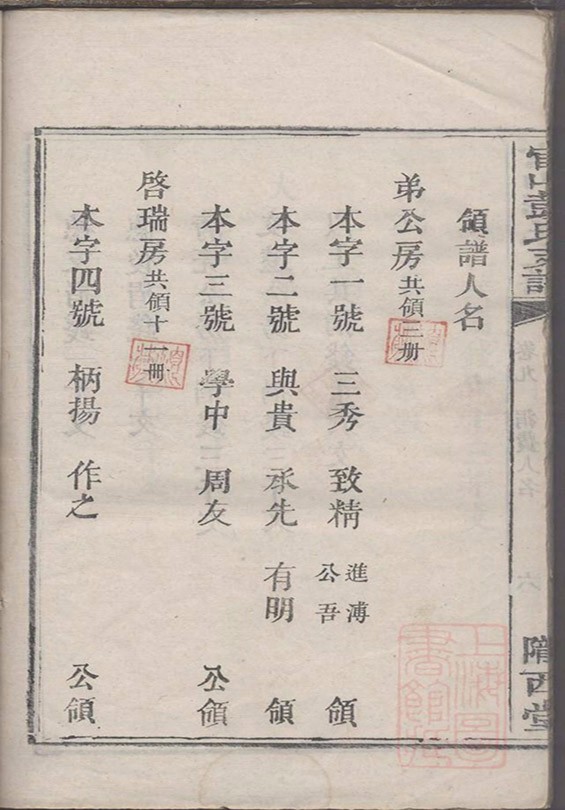 隴西堂
卷九
六
領譜人名
弟公房共領三册
本字一號 三秀 致精 進溥 公吾 領
本字二號 與貴 承先 有明 領
本字三號 學中 周友 公領
啓瑞房共領十一冊
本字四號 柄揚 作之 公領
上海图
書館藏